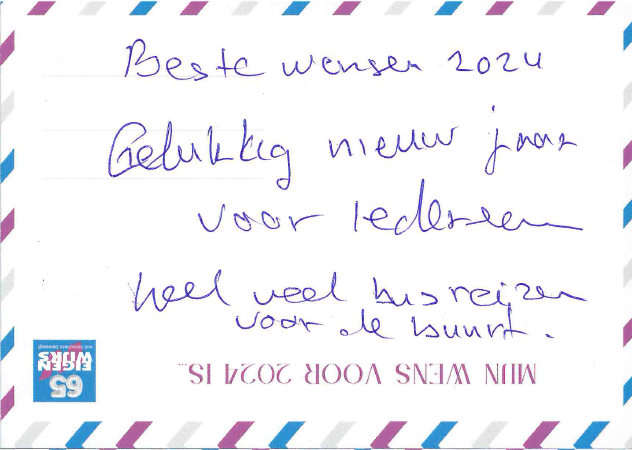 Beste wensen 2024
Gelukkig nieuw jaar
voor iedereen
heel veel busreizen
voor de buurt.
MIJN WENS VOOR 2024 IS...
65
EIGEN
WIJKS